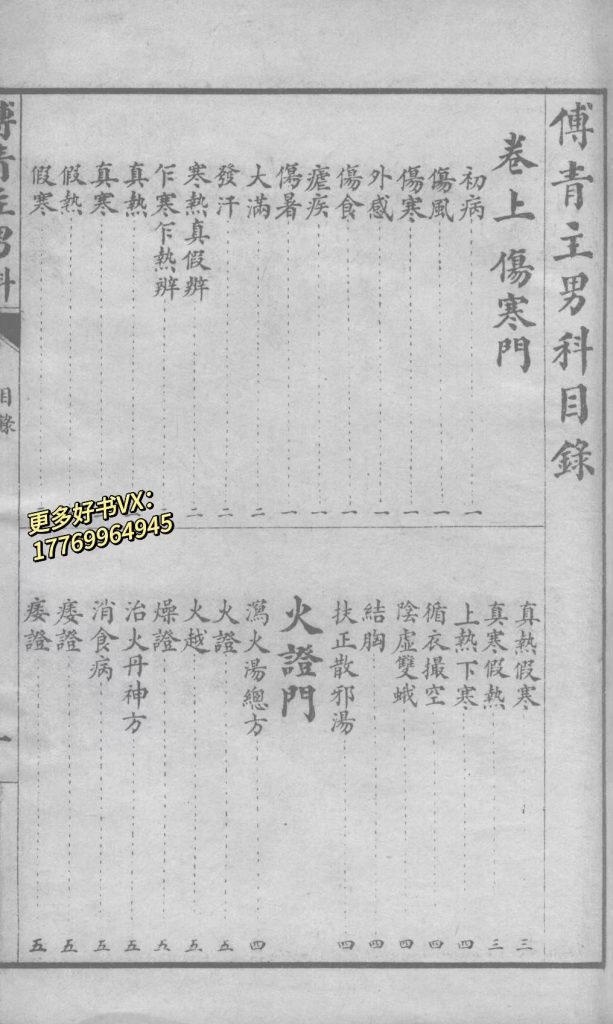 傅青主男科目錄
卷上 傷寒門
初病 一
傷風 一
傷寒 一
外感 一
傷食 一
瘧疾 一
傷暑 一
大滿 二
發汗 二
寒熱真假辨 二
乍寒乍熱辨
真熱
真寒
假熱
假寒
真熱假寒 三
真寒假熱 三
上熱下寒 四
循衣撮空 四
陰虛雙蛾 四
結胸 四
扶正散邪湯 四
火證門
瀉火湯總方 四
火證 五
火越 五
燥證 五
治火丹神方 五
消食病 五
痿證 五
痿證 五
傅青主男科
目錄
一
更多好书VX：
17769964945